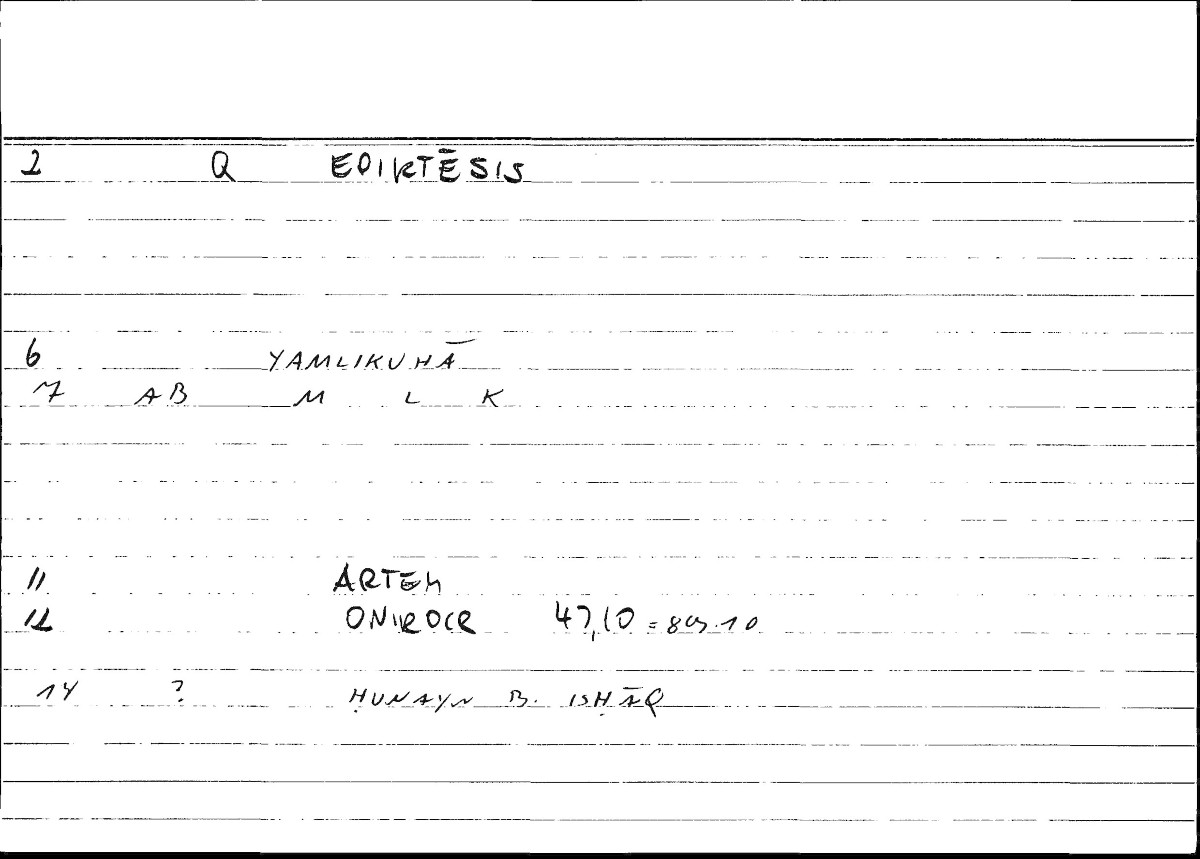 2 Q EPIKTĒSIS
6 YAMLIKUHĀ
7 AB M L K
11 ARTEM
12 ONIROCR 47,10 = 89.10
14 ? ḤUNAYN B. ISḤĀQ